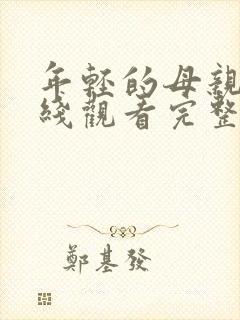 年輕的母親
綫觀看完整
鄭基發